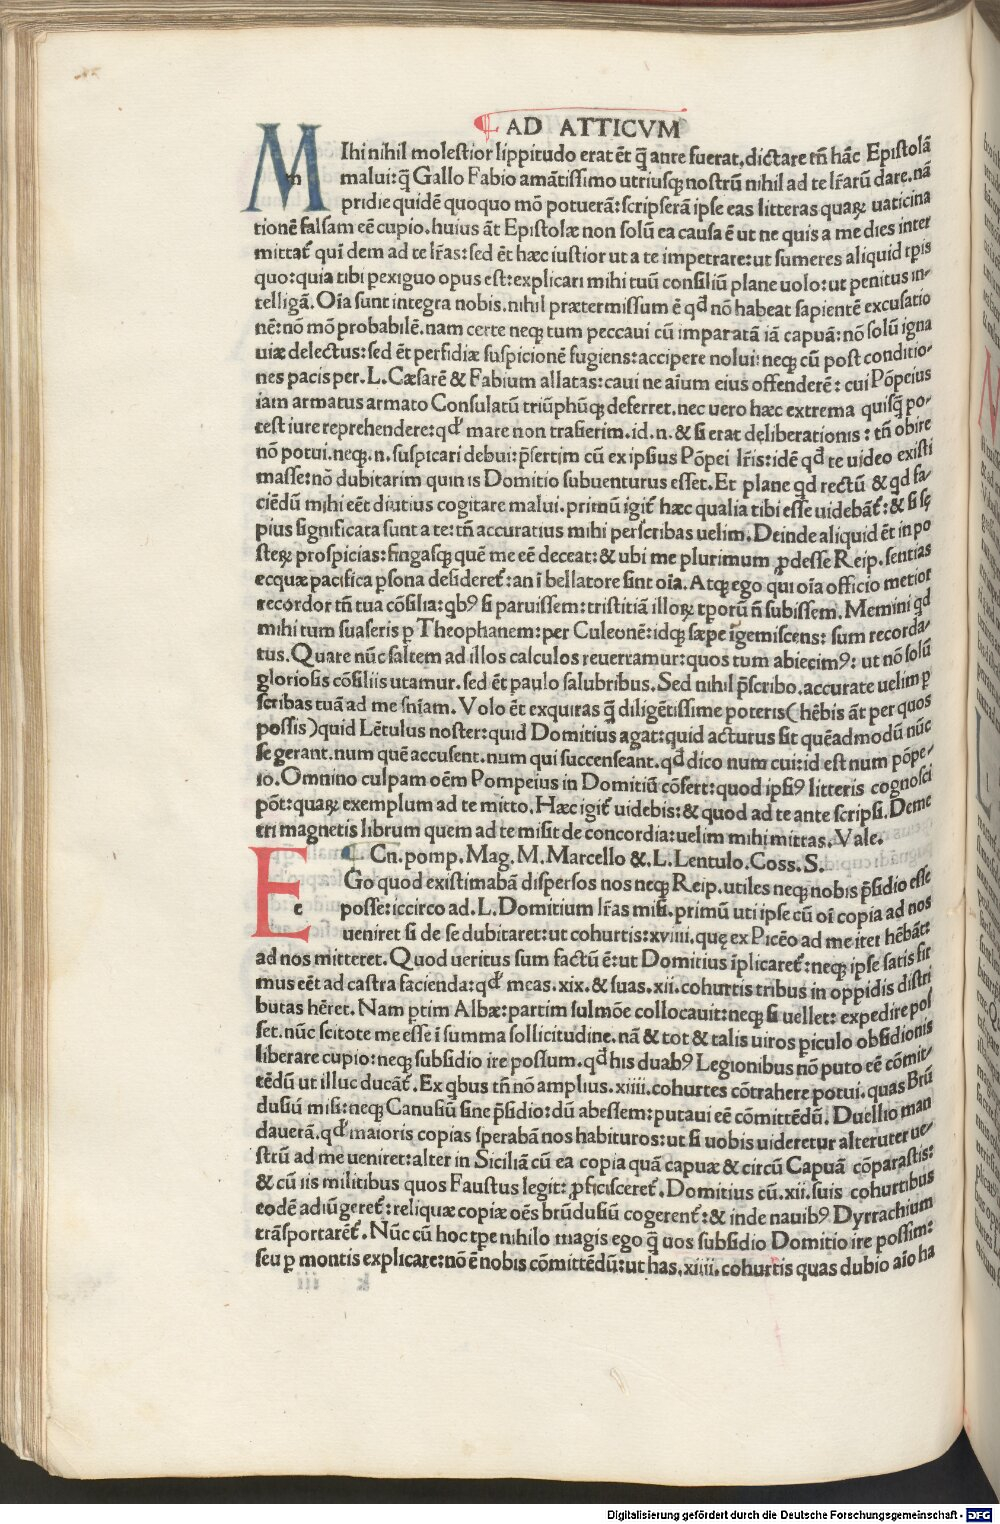 AD ATTICVM
MIhi nihil molestior lippitudo erat ēt q̄ ante fuerat, dictare tñ hāc Epistolā
malui: q̄ Gallo Fabio amātissimo utriusq; nostrū nihil ad te lr̄arū dare. nā
pridie quidē quoquo mō potuerā: scripserā ipse eas litteras quaꝝ uaticina
tionē falsam eē cupio. huius āt Epistolæ non solū ea causa ē ut ne quis a me dies inter
mittat᷑ qui dem ad te lr̄as: sed ēt hæc iustior ut a te impetrare: ut sumeres aliquid tp̄is
quo: quia tibi pexiguo opus est: explicari mihi tuū consiliū plane uolo: ut penitus in-
telligā. Oīa sunt integra nobis. nihil prætermissum ē qđ nō habeat sapientē excusatio
nē: nō mō probabilē. nam certe neq; tum peccaui cū imparatā iā capuā: nō solū igna
uiæ delectus: sed ēt perfidiæ suspicionē fugiens: accipere nolui: neq; cū post conditio-
nes pacis per. L. Cæsarē & Fabium allatas: caui ne aīum eius offenderē: cui Pōpeius
iam armatus armato Consulatū triūphūq; deferret. nec uero hæc extrema quisq̄ po-
test iure reprehendere: qđ mare non trāsierim. id. n. & si erat deliberationis: tñ obire
nō potui. neq;. n. suspicari debui: p̄sertim cū ex ipsius Pōpei lr̄is: idē qđ te uideo existi
masse: nō dubitarim quin is Domitio subuenturus esset. Et plane qd rectū & qd fa-
ciēdū mihi eēt diutius cogitare malui. primū igit᷑ hæc qualia tibi esse uidebāt᷑: & si sę
pius significata sunt a te: tñ accuratius mihi perscribas uelim. Deinde aliquid ēt in po
steꝝ prospicias: fingasq; quē me eē deceat: & ubi me plurimum ꝓdesse Reip. sentias
ecquæ pacifica ꝑsona desideret᷑: an ī bellatore sint oīa. Atq; ego qui oīa officio metior
recordor tñ tua cōsilia: qbꝰ si paruissem: tristitiā illoꝝ tꝑorū ñ subissem. Memini qd
mihi tum suaseris ꝑ Theophanem: per Culeonē: idq; sæpe īgemiscens: sum recorda-
tus. Quare nūc saltem ad illos calculos reuertamur: quos tum abiecimꝰ: ut nō solū
gloriosis cōsiliis utamur. sed ēt paulo salubribus. Sed nihil p̄scribo. accurate uelim ꝑ
scribas tuā ad me sn̄iam. Volo ēt exquiras q̄ diligētissime poteris (hēbis āt per quos
possis) quid Lētulus noster: quid Domitius agat: quid acturus sit quēadmodū nūc
se gerant. num quē accusent. num qui succenseant. qđ dico num cui: id est num pōpe-
io. Omnino culpam oēm Pompeius in Domitiū cōfert: quod ipsiꝰ litteris cognosci
pōt: quaꝝ exemplum ad te mitto. Hæc igit᷑ uidebis: & quod ad te ante scripsi. Deme
tri magnetis librum quem ad te misit de concordia: uelim mihi mittas. Vale.
Cn. pomp. Mag. M. Marcello &. L. Lentulo. Coss. S.
EGo quod existimabā dispersos nos neq; Reip. utiles neq; nobis p̄sidio esse
posse: iccirco ad. L. Domitium lr̄as misi. primū uti ipse cū oī copia ad nos
ueniret si de se dubitaret: ut cohurtis: xviiii. quę ex Picēo ad me iter hēbāt:
ad nos mitteret. Quod ueritus sum factū ē: ut Domitius īplicaret᷑: neq; ipse satis fir
mus eēt ad castra facienda: qđ meas. xix. & suas. xii. cohurtis tribus in oppidis distri
butas hēret. Nam ꝑtim Albæ: partim sulmōe collocauit: neq; si uellet: expedire pos
set. nūc scitote me esse ī summa sollicitudine. nā & tot & talis uiros ꝑiculo obsidionis
liberare cupio: neq; subsidio ire possum. qđ his duabꝰ Legionibus nō puto eē cōmit-
tēdū ut illuc ducāt᷑. Ex qbus tñ nō amplius. xiiii. cohurtes cōtrahere potui. quas Brū
dusiū misi: neq; Canusiū sine p̄sidio: dū abessem: putaui eē cōmittēdū. Duellio man
dauerā. qđ maioris copias sperabā nos habituros: ut si uobis uideretur alteruter ue-
strū ad me ueniret: alter in Siciliā cū ea copia quā capuæ & circū Capuā cōparastis:
& cū iis militibus quos Faustus legit: ꝓficisceret᷑. Domitius cū. xii. suis cohurtibus
eodē adiūgeret᷑: reliquæ copiæ oēs brūdusiū cogerent᷑: & inde nauibꝰ Dyrrachium
trāsportarēt᷑. Nūc cū hoc tꝑe nihilo magis ego q̄ uos subsidio Domitio ire possim:
seu ꝑ montis explicare: nō ē nobis cōmittēdū: ut has. xiiii. cohurtis quas dubio aīo ha
Digitalisierung gefördert durch die Deutsche Forschungsgemeinschaft - DFG